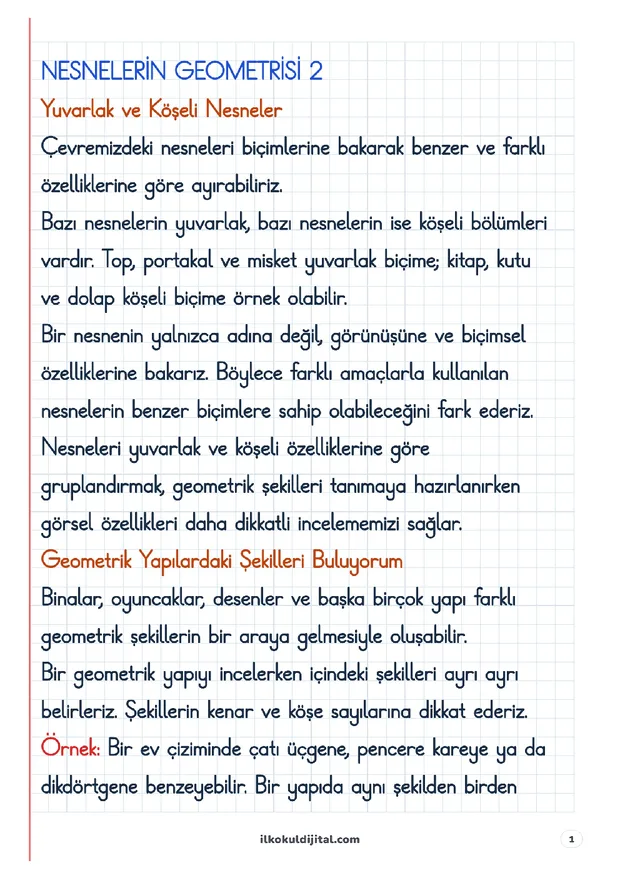 NESNELERİN GEOMETRİSİ 2
Yuvarlak ve Köşeli Nesneler
Çevremizdeki nesneleri biçimlerine bakarak benzer ve farklı
özelliklerine göre ayırabiliriz.
Bazı nesnelerin yuvarlak, bazı nesnelerin ise köşeli bölümleri
vardır. Top, portakal ve misket yuvarlak biçime; kitap, kutu
ve dolap köşeli biçime örnek olabilir.
Bir nesnenin yalnızca adına değil, görünüşüne ve biçimsel
özelliklerine bakarız. Böylece farklı amaçlarla kullanılan
nesnelerin benzer biçimlere sahip olabileceğini fark ederiz.
Nesneleri yuvarlak ve köşeli özelliklerine göre
gruplandırmak, geometrik şekilleri tanımaya hazırlanırken
görsel özellikleri daha dikkatli incelememizi sağlar.
Geometrik Yapılardaki Şekilleri Buluyorum
Binalar, oyuncaklar, desenler ve başka birçok yapı farklı
geometrik şekillerin bir araya gelmesiyle oluşabilir.
Bir geometrik yapıyı incelerken içindeki şekilleri ayrı ayrı
belirleriz. Şekillerin kenar ve köşe sayılarına dikkat ederiz.
Örnek: Bir ev çiziminde çatı üçgene, pencere kareye ya da
dikdörtgene benzeyebilir. Bir yapıda aynı şekilden birden
ilkokuldijital.com
1